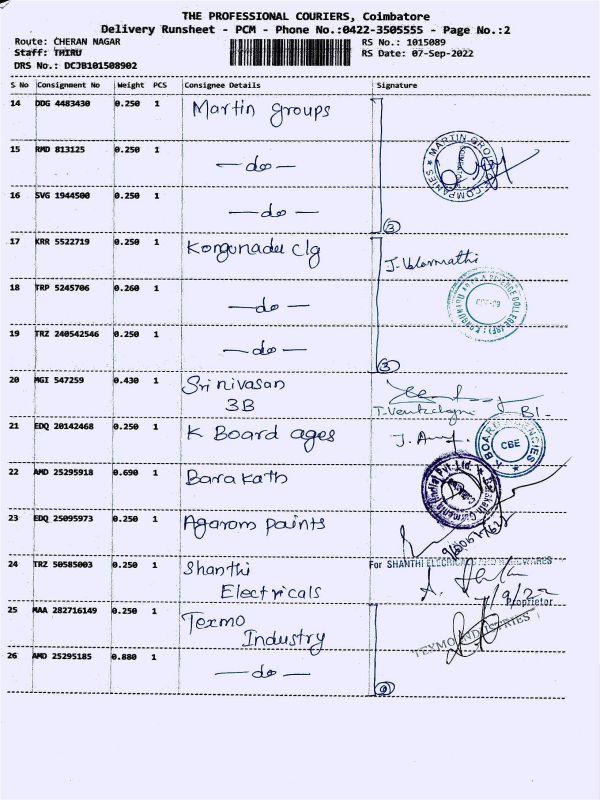 THE PROFESSIONAL COURIERS, Coimbatore
Delivery Runsheet - PCM - Phone No.:0422-3505555 - Page No.:2
Route: CHERAN NAGAR RS No.: 1015089
Staff: THIRU RS Date: 07-Sep-2022
DRS No.: DCJB101508902
S No Consignment No Weight PCS Consignee Details Signature
14 DDG 4483430 0.250 1 Martin groups
15 RMD 813125 0.250 1 — do —
MARTIN GROUP COMPANIES
16 SVG 1944500 0.250 1 — do —
3
17 KRR 5522719 0.250 1 Kongunadu clg
J. Valarmathi
18 TRP 5245706 0.260 1 — do —
19 TRZ 240542546 0.250 1 — do —
3
20 MGI 547259 0.430 1 Srinivasan
3B
21 EDQ 20142468 0.250 1 K Board ages
K BOARD AGENCIES CBE
22 AMD 25295918 0.690 1 Barakath
23 EDQ 25095973 0.250 1 Agarom paints
24 TRZ 50585003 0.250 1 Shanthi
For SHANTHI ELECRICALS AND HARDWARES
Electricals
7/9/22
Proprietor
25 MAA 282716149 0.250 1 Texmo
Industry
TEXMO INDUSTRIES
26 AMD 25295185 0.880 1 — do —